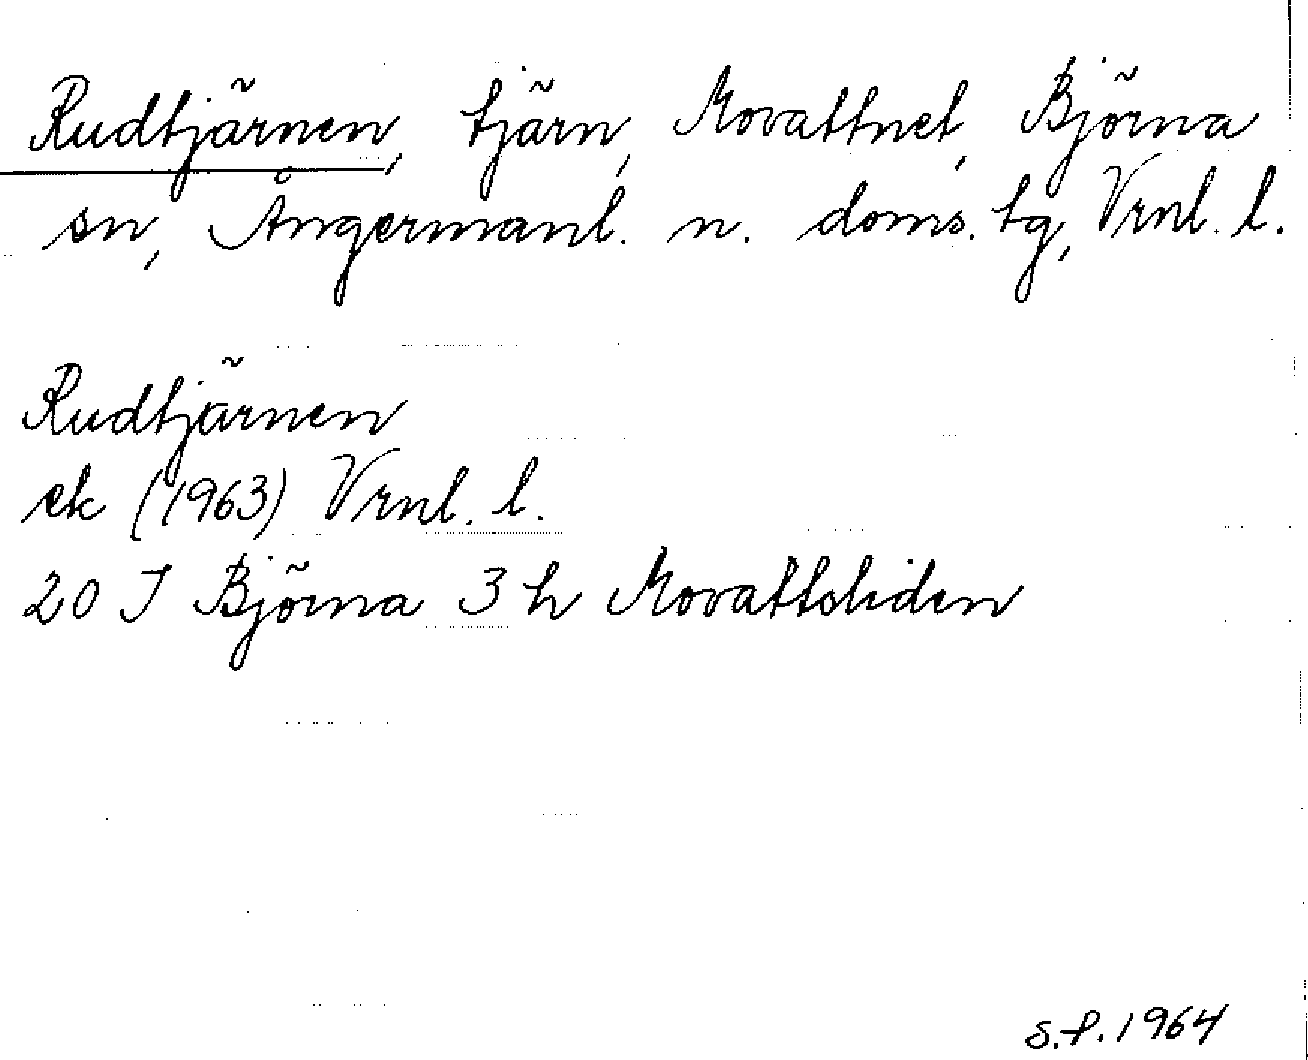 Rudtjärnen, tjärn, Movattnet, Björna
sn, Ångermanl. n. doms. tg, Vrnl. l.
Rudtjärnen
ek (1963) Vrnl. l.
20 I Björna 3 h Movattsliden
S.P. 1964